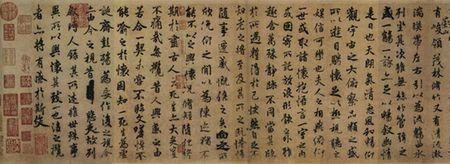 有峻領茂林脩竹又有清流激
湍暎帶左右引以為流觴曲水
列坐其次雖無絲竹管弦之
盛一觴一詠亦足以暢敘幽情
是日也天朗氣清惠風和暢仰
觀宇宙之大俯察品類之盛
所以遊目騁懷足以極視聽之
娛信可樂也夫人之相與俯仰
一世或取諸懷抱悟言一室之內
或因寄所託放浪形骸之外雖
趣舍萬殊靜躁不同當其欣
於所遇暫得於己怏然自足不
知老之將至及其所之既惓情
隨事遷感慨係之矣向之所
欣俛仰之閒以為陳跡猶不
能不以之興懷況脩短隨化終
期於盡古人云死生亦大矣豈
不痛哉每攬昔人興感之由
若合一契未嘗不臨文嗟悼不
能喻之於懷固知一死生為虛
誕齊彭殤為妄作後之視今
亦由今之視昔悲夫故列
敘時人錄其所述雖世殊事
異所以興懷其致一也後之攬
者亦將有感於斯文